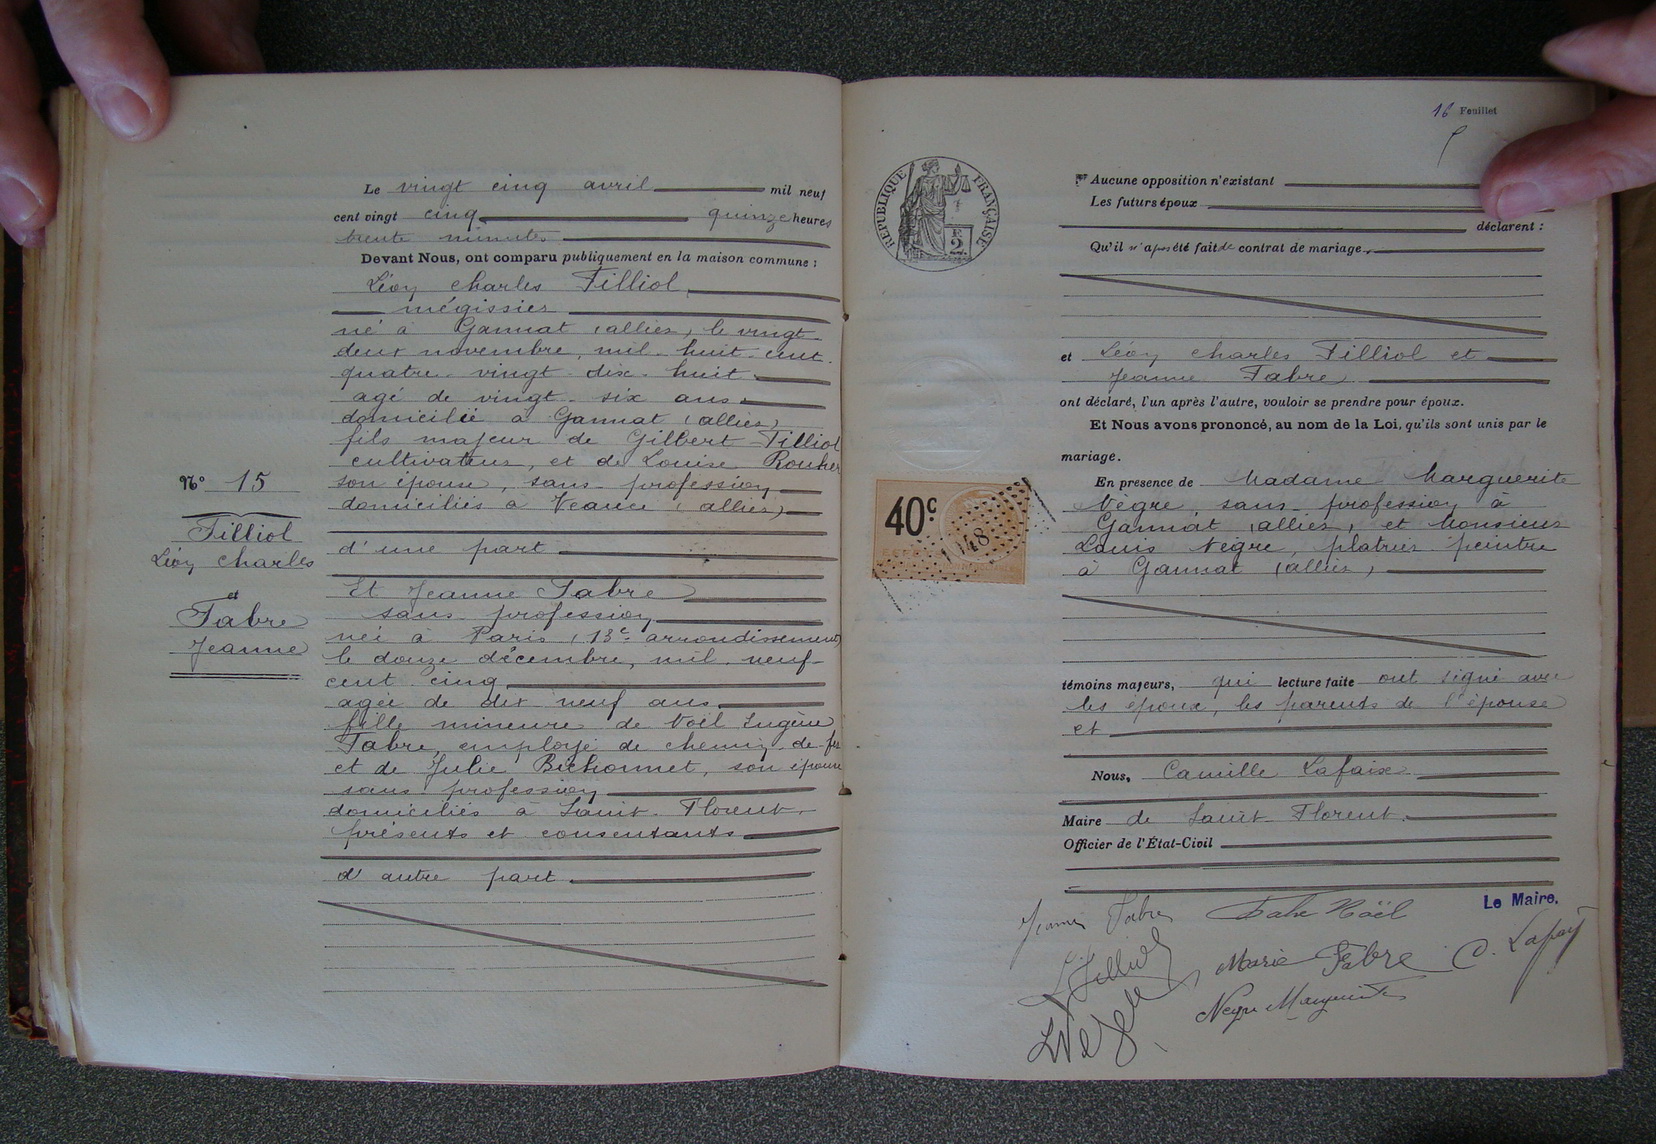 Le vingt cinq avril mil neuf
cent vingt cinq quinze heures
trente minutes
Devant Nous, ont comparu publiquement en la maison commune :
Léon Charles Filliol
mégissier
né à Gannat (allier) le vingt
deux novembre, mil huit cent
quatre vingt dix huit
agé de vingt six ans
domicilié à Gannat (allier)
fils majeur de Gilbert Filliol
cultivateur, et de Louise Rouher
son épouse, sans profession
domiciliés à Veauce (allier)
d'une part
N° 15
Filliol
Léon Charles
et
Fabre
Jeanne
Et Jeanne Fabre
sans profession
née à Paris (13e arrondissement)
le douze décembre, mil neuf
cent cinq
agée de dix neuf ans
fille mineure de Noël Eugène
Fabre, employé de chemin de fer
et de Julie Bichonnet, son épouse
sans profession
domiciliés à Saint Florent
présents et consentants
d'autre part
16 Feuillet
RÉPUBLIQUE FRANÇAISE
2F
40c
1048
Aucune opposition n'existant
Les futurs époux
déclarent :
Qu'il n'a pas été fait de contrat de mariage
et Léon Charles Filliol et
Jeanne Fabre
ont déclaré, l'un après l'autre, vouloir se prendre pour époux.
Et Nous avons prononcé, au nom de la Loi, qu'ils sont unis par le
mariage.
En présence de Madame Marguerite
Nègre, sans profession à
Gannat (allier) et Monsieur
Louis Nègre, platrier peintre
à Gannat (allier)
témoins majeurs, qui lecture faite ont signé avec
les époux, les parents de l'épouse
et
Nous, Camille Lafaix
Maire de Saint Florent
Officier de l'État-Civil
Le Maire,
Jeanne Fabre Fabre Noël
L Filliol Marie Fabre C. Lafaix
Negre Marguerite